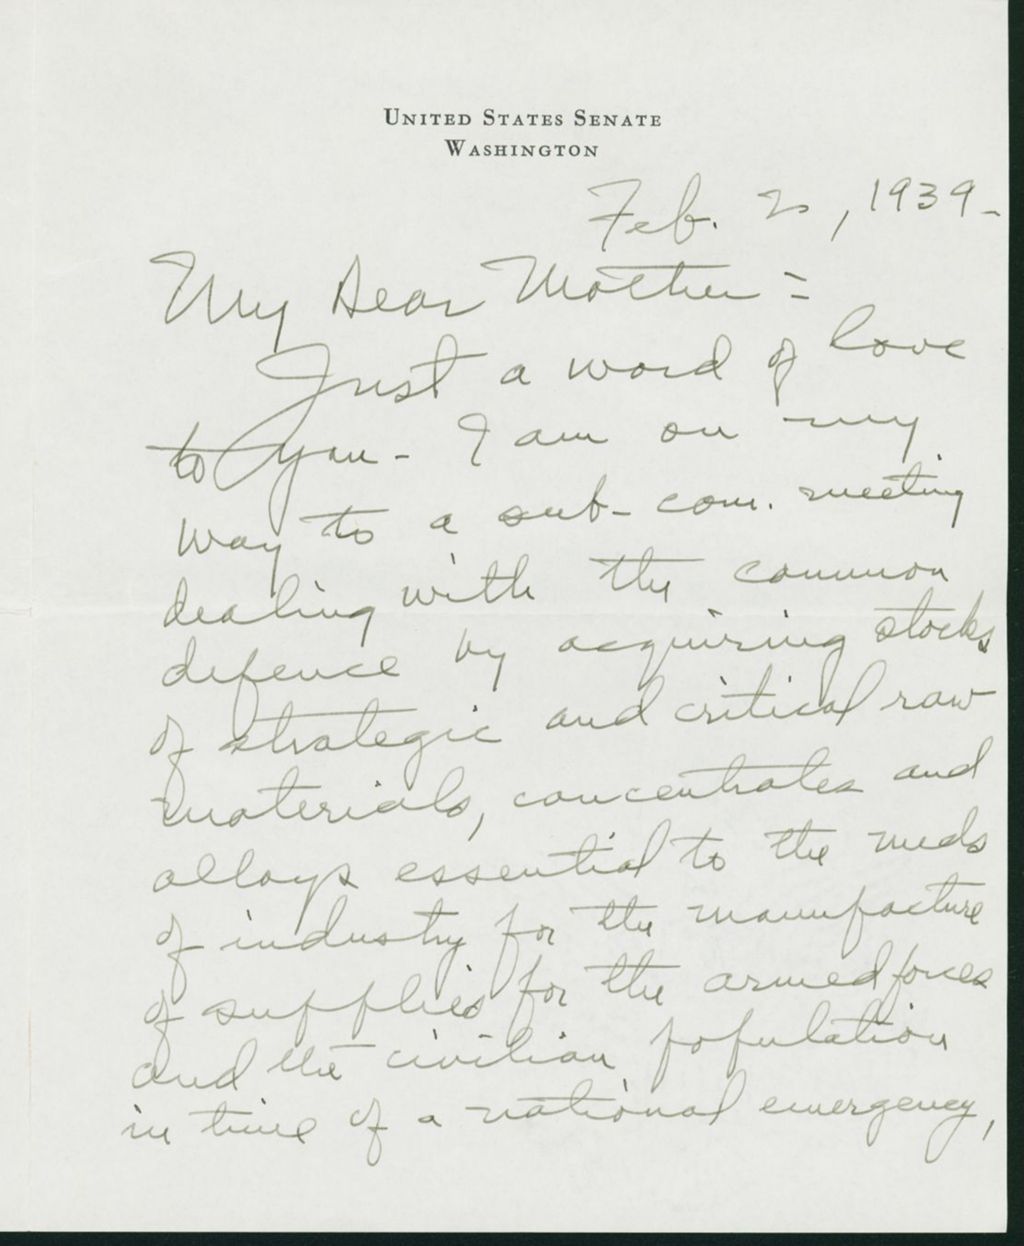 UNITED STATES SENATE
WASHINGTON
Feb. 2, 1939-
My Dear Mother =
Just a word of love
to you - I am on my
way to a sub-com. meeting
dealing with the common
defence by acquiring stocks
of strategic and critical raw
materials, concentrates and
alloys essential to the needs
of industry for the manufacture
of supplies for the armed forces
and the civilian population
in time of a national emergency,